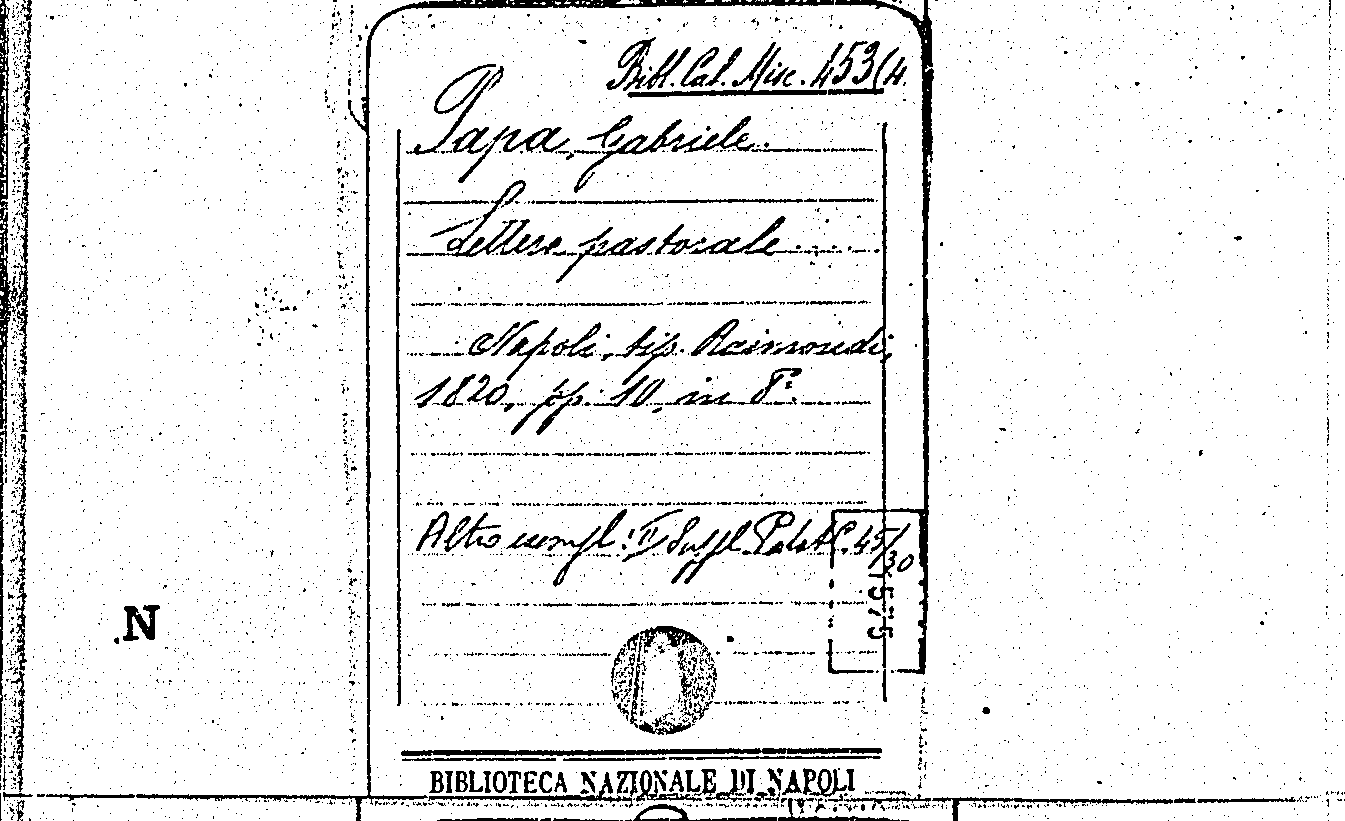 Bibl. Cal. Misc. 453(4.
Papa, Gabriele.
Lettera pastorale .....
Napoli, tip. Raimondi,
1820, pp. 10, in 8º.
Altro esempl: II Suppl. Palat C. 45/30
1575
N
BIBLIOTECA NAZIONALE DI NAPOLI